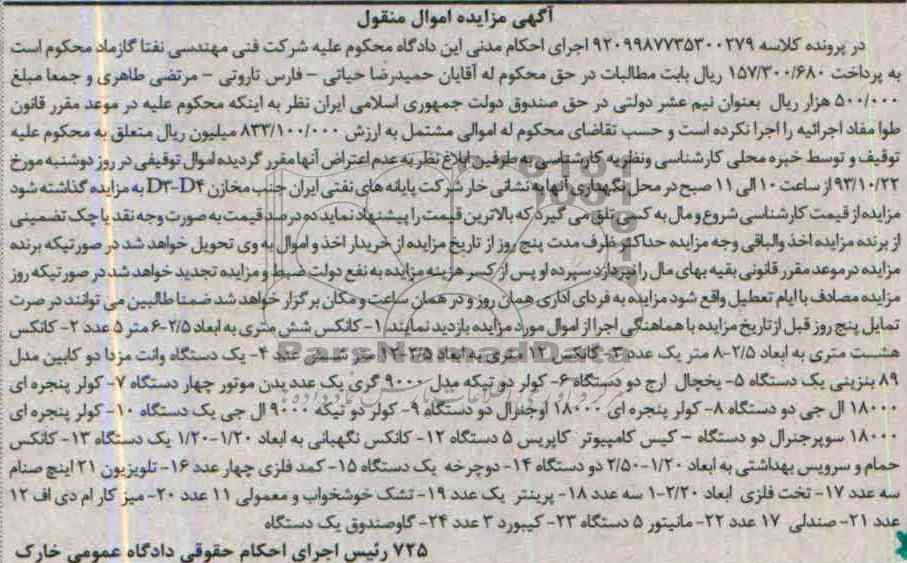 آگهی مزایده اموال منقول
در پرونده کلاسه ۹۲۰۹۹۸۷۷۳۵۳۰۰۲۷۹ اجرای احکام مدنی این دادگاه محکوم علیه شرکت فنی مهندسی نفتا گازماد محکوم است
به پرداخت ۱۵۷/۳۰۰/۶۸۰ ریال بابت مطالبات در حق محکوم له آقایان حمیدرضا حیاتی – فارس تاروتی – مرتضی طاهری و جمعا مبلغ
۵۰۰/۰۰۰ هزار ریال بعنوان نیم عشر دولتی در حق صندوق دولت جمهوری اسلامی ایران نظر به اینکه محکوم علیه در موعد مقرر قانون
طوا مفاد اجرائیه را اجرا نکرده است و حسب تقاضای محکوم له اموالی مشتمل به ارزش ۸۳۳/۱۰۰/۰۰۰ میلیون ریال متعلق به محکوم علیه
توقیف و توسط خبره محلی کارشناسی ونظریه کارشناسی به طرفین ابلاغ نظر به عدم اعتراض آنها مقرر گردیده اموال توقیفی در روز دوشنبه مورخ
۹۳/۱۰/۲۲ از ساعت ۱۰ الی ۱۱ صبح در محل نگهداری آنها به نشانی خار شرکت پایانه های نفتی ایران جنب مخازن D۳-D۴ به مزایده گذاشته شود
مزایده از قیمت کارشناسی شروع و مال به کسی تلق می گیرد که بالاترین قیمت را پیشنهاد نماید ده درصد قیمت به صورت وجه نقد یا چک تضمینی
از برنده مزایده اخذ والباقی وجه مزایده حداکثر ظرف مدت پنج روز از تاریخ مزایده از خریدار اخذ و اموال به وی تحویل خواهد شد در صورتیکه برنده
مزایده در موعد مقرر قانونی بقیه بهای مال را نپردازد سپرده او پس از کسر هزینه مزایده به نفع دولت ضبط و مزایده تجدید خواهد شد در صورتیکه روز
مزایده مصادف با ایام تعطیل واقع شود مزایده به فردای اداری همان روز و در همان ساعت و مکان برگزار خواهد شد ضمنا طالبین می توانند در صرت
تمایل پنج روز قبل ازتاریخ مزایده با هماهنگی اجرا از اموال مورد مزایده بازدید نمایند. ۱- کانکس شش متری به ابعاد ۲/۵-۶ متر ۵ عدد ۲- کانکس
هشت متری به ابعاد ۲/۵-۸ متر یک عدد ۳- کانکس ۱۲ متری به ابعاد ۲/۵-۱۲ متر شش عدد ۴- یک دستگاه وانت مزدا دو کابین مدل
۸۹ بنزینی یک دستگاه ۵- یخچال ارج دو دستگاه ۶- کولر دو تیکه مدل ۹۰۰۰ گری یک عدد بدن موتور چهار دستگاه ۷- کولر پنجره ای
۱۸۰۰۰ ال جی دو دستگاه ۸- کولر پنجره ای ۱۸۰۰۰ اوجنرال دو دستگاه ۹- کولر دو تیکه ۹۰۰۰ ال جی یک دستگاه ۱۰- کولر پنجره ای
۱۸۰۰۰ سوپرجنرال دو دستگاه – کیس کامپیوتر کاپریس ۵ دستگاه ۱۲- کانکس نگهبانی به ابعاد ۱/۲۰-۱/۲۰ یک دستگاه ۱۳- کانکس
حمام و سرویس بهداشتی به ابعاد ۱/۲۰-۲/۵۰ دو دستگاه ۱۴- دوچرخه یک دستگاه ۱۵- کمد فلزی چهار عدد ۱۶- تلویزیون ۲۱ اینچ صنام
سه عدد ۱۷- تخت فلزی ابعاد ۲/۲۰-۱ سه عدد ۱۸- پرینتر یک عدد ۱۹- تشک خوشخواب و معمولی ۱۱ عدد ۲۰- میز کار ام دی اف ۱۲
عدد ۲۱- صندلی ۱۷ عدد ۲۲- مانیتور ۵ دستگاه ۲۳- کیبورد ۳ عدد ۲۴- گاوصندوق یک دستگاه
۷۲۵ رئیس اجرای احکام حقوقی دادگاه عمومی خارک
ParsNamadData